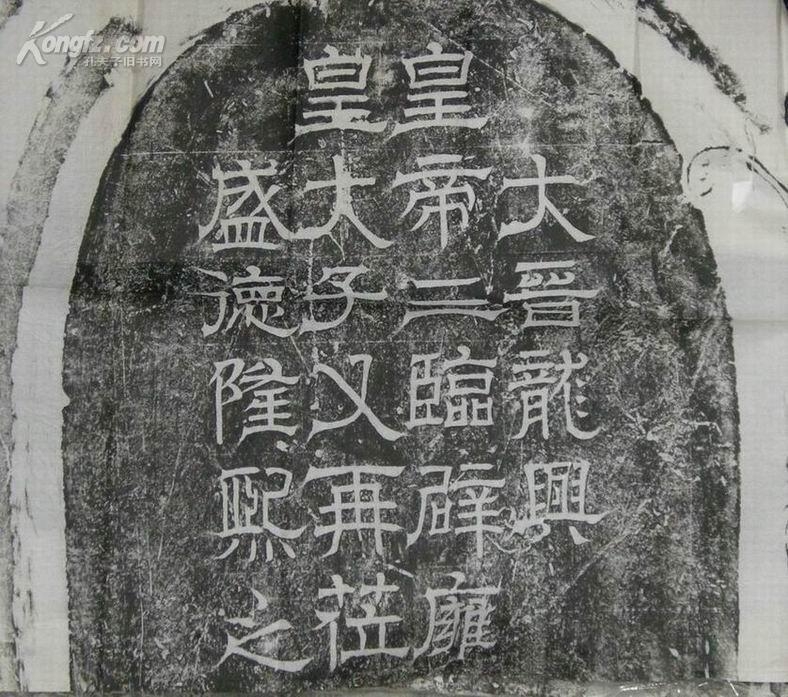 Kongfz.com
孔夫子旧书网
大晉龍興
皇帝三臨辟廱
皇大子又再莅
盛德隆熙之